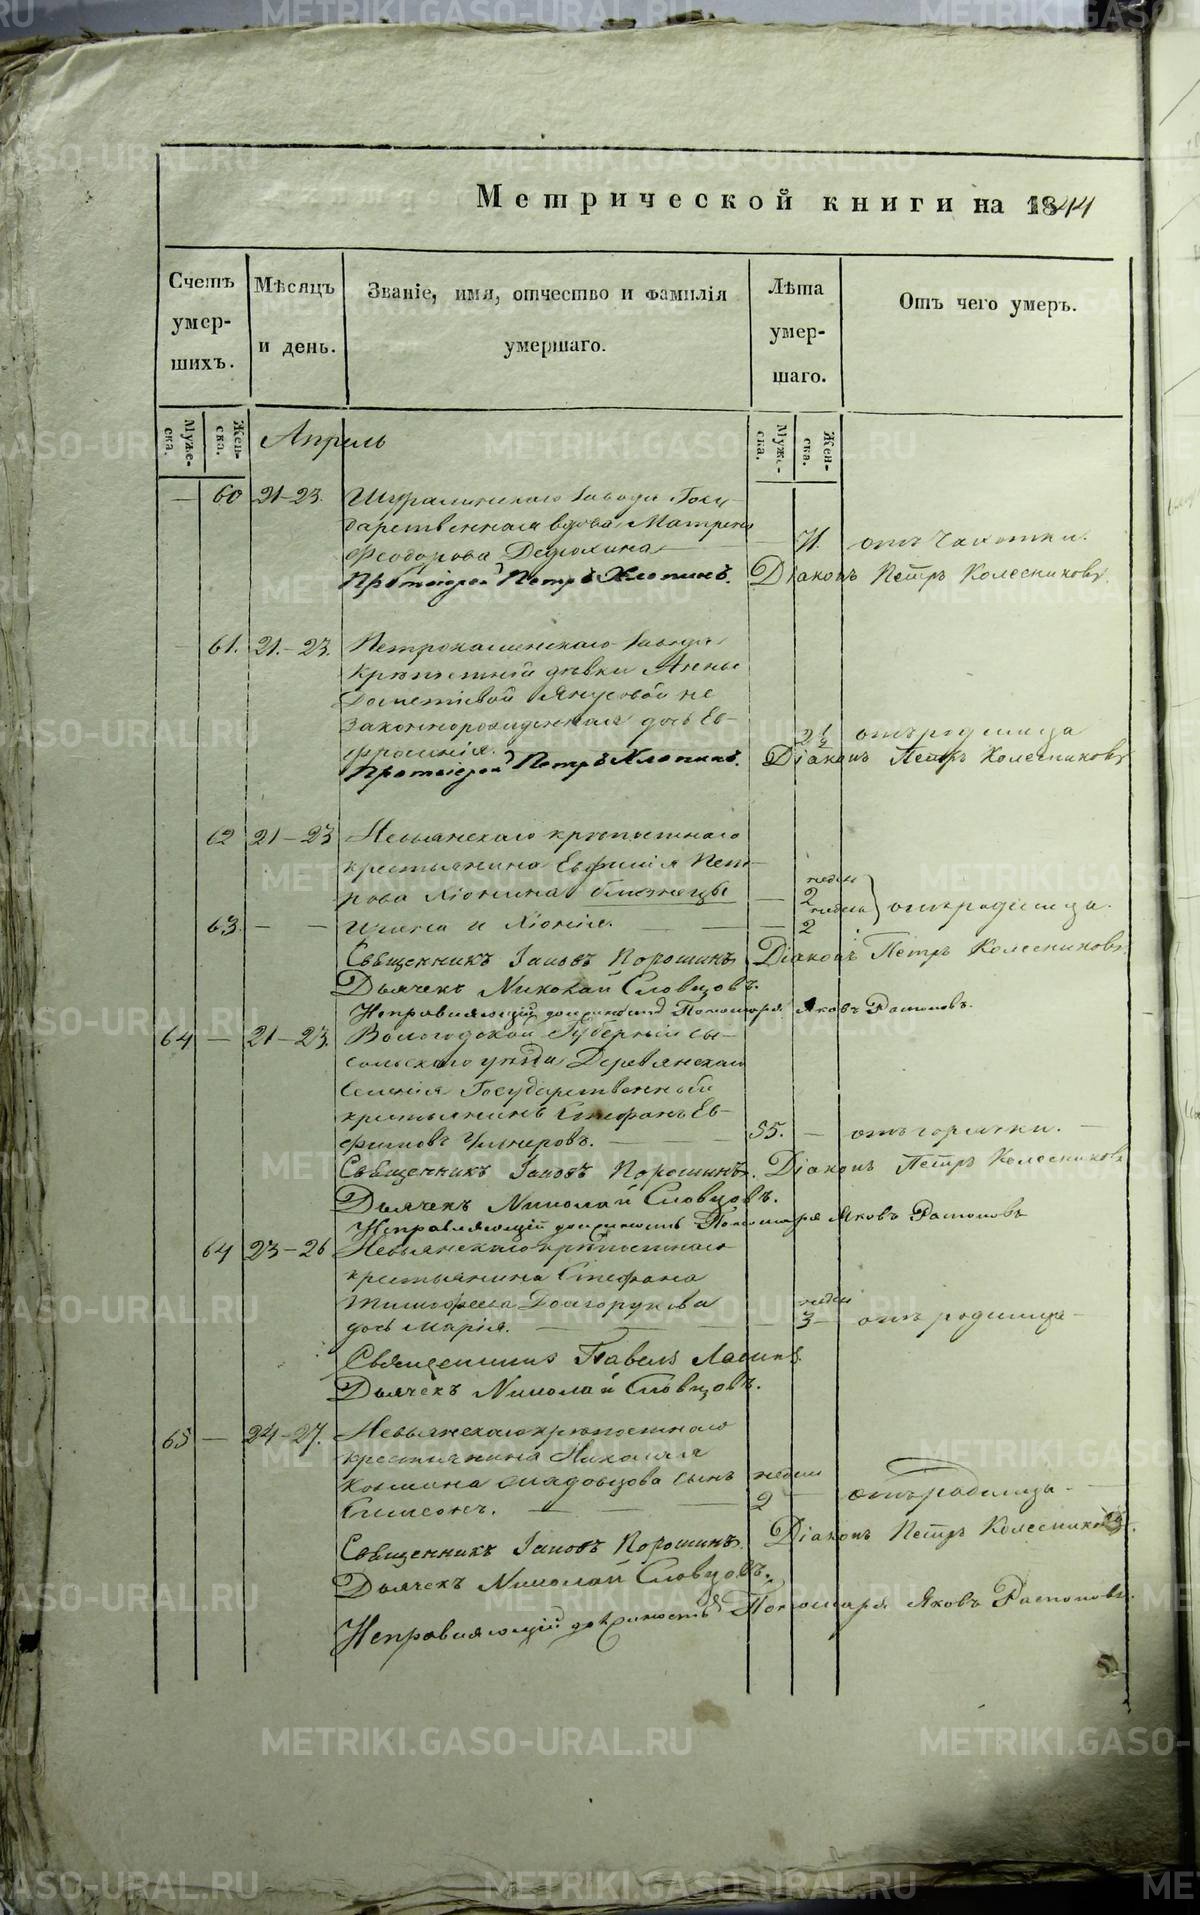 Метрической книги на 1844
Счетъ умер-шихъ.
Мѣсяцъ и день.
Званіе, имя, отчество и фамилія умершаго.
Лѣта умер-шаго.
Отъ чего умеръ.
Муже-ска.
Жен-ска.
Муже-ска.
Жен-ска.
Апрель
— 60 21-23. Шуралинскаго завода Госу-
дарственная вдова Матрена
Феодорова — — отъ чахотки.
Протоіерей Петръ Хлопинъ. Діаконъ Петръ Колесниковъ.
— 61. 21.-23. Петрокаменскаго завода
крѣпостной дѣвки Анны
не
законнорожденная дочь Ев-
фросинія. 2 1/2 отъ родимца
Протоіерей Петръ Хлопинъ. Діаконъ Петръ Колесниковъ
62 21-23 Невьянскаго крѣпостнаго
крестьянина Евфимія Пет-
рова близнецы — недели 2
63. — — и Хіонія. — недели 2 отъ родимца.
Священникъ Іаковъ Порошинъ. Діаконъ Петръ Колесниковъ
Дьячекъ Николай Словцовъ.
Исправляющій должность Пономаря Яковъ Распоповъ.
64 — 21-23. Вологодской Губерніи Сы-
сольскаго уѣзда Деревянскаго
селенія Государственный
крестьянинъ Стефанъ Ев-
фимовъ — 55. — отъ горячки. —
Священникъ Іаковъ Порошинъ. Діаконъ Петръ Колесниковъ
Дьячекъ Николай Словцовъ.
Исправляющій должность Пономаря Яковъ Распоповъ
64 23-26 Невьянскаго крѣпостнаго
крестьянина Стефана
Тимофеева Долгорукова
дочь Марія. — недели 3 — отъ родимца —
Священникъ Павелъ
Дьячекъ Николай Словцовъ.
65 — 24-27. Невьянскаго крѣпостнаго
крестьянина Николая
Козмина сынъ недели
Симеонъ. — — 2 — отъ родимца —
Священникъ Іаковъ Порошинъ. Діаконъ Петръ Колесниковъ.
Дьячекъ Николай Словцовъ.
Исправляющій должность Пономаря Яковъ Распоповъ.
METRIKI.GASO-URAL.RU